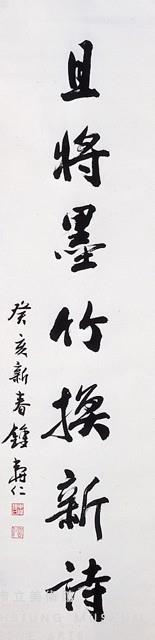 且將墨竹換新詩
癸亥新春鐘壽仁